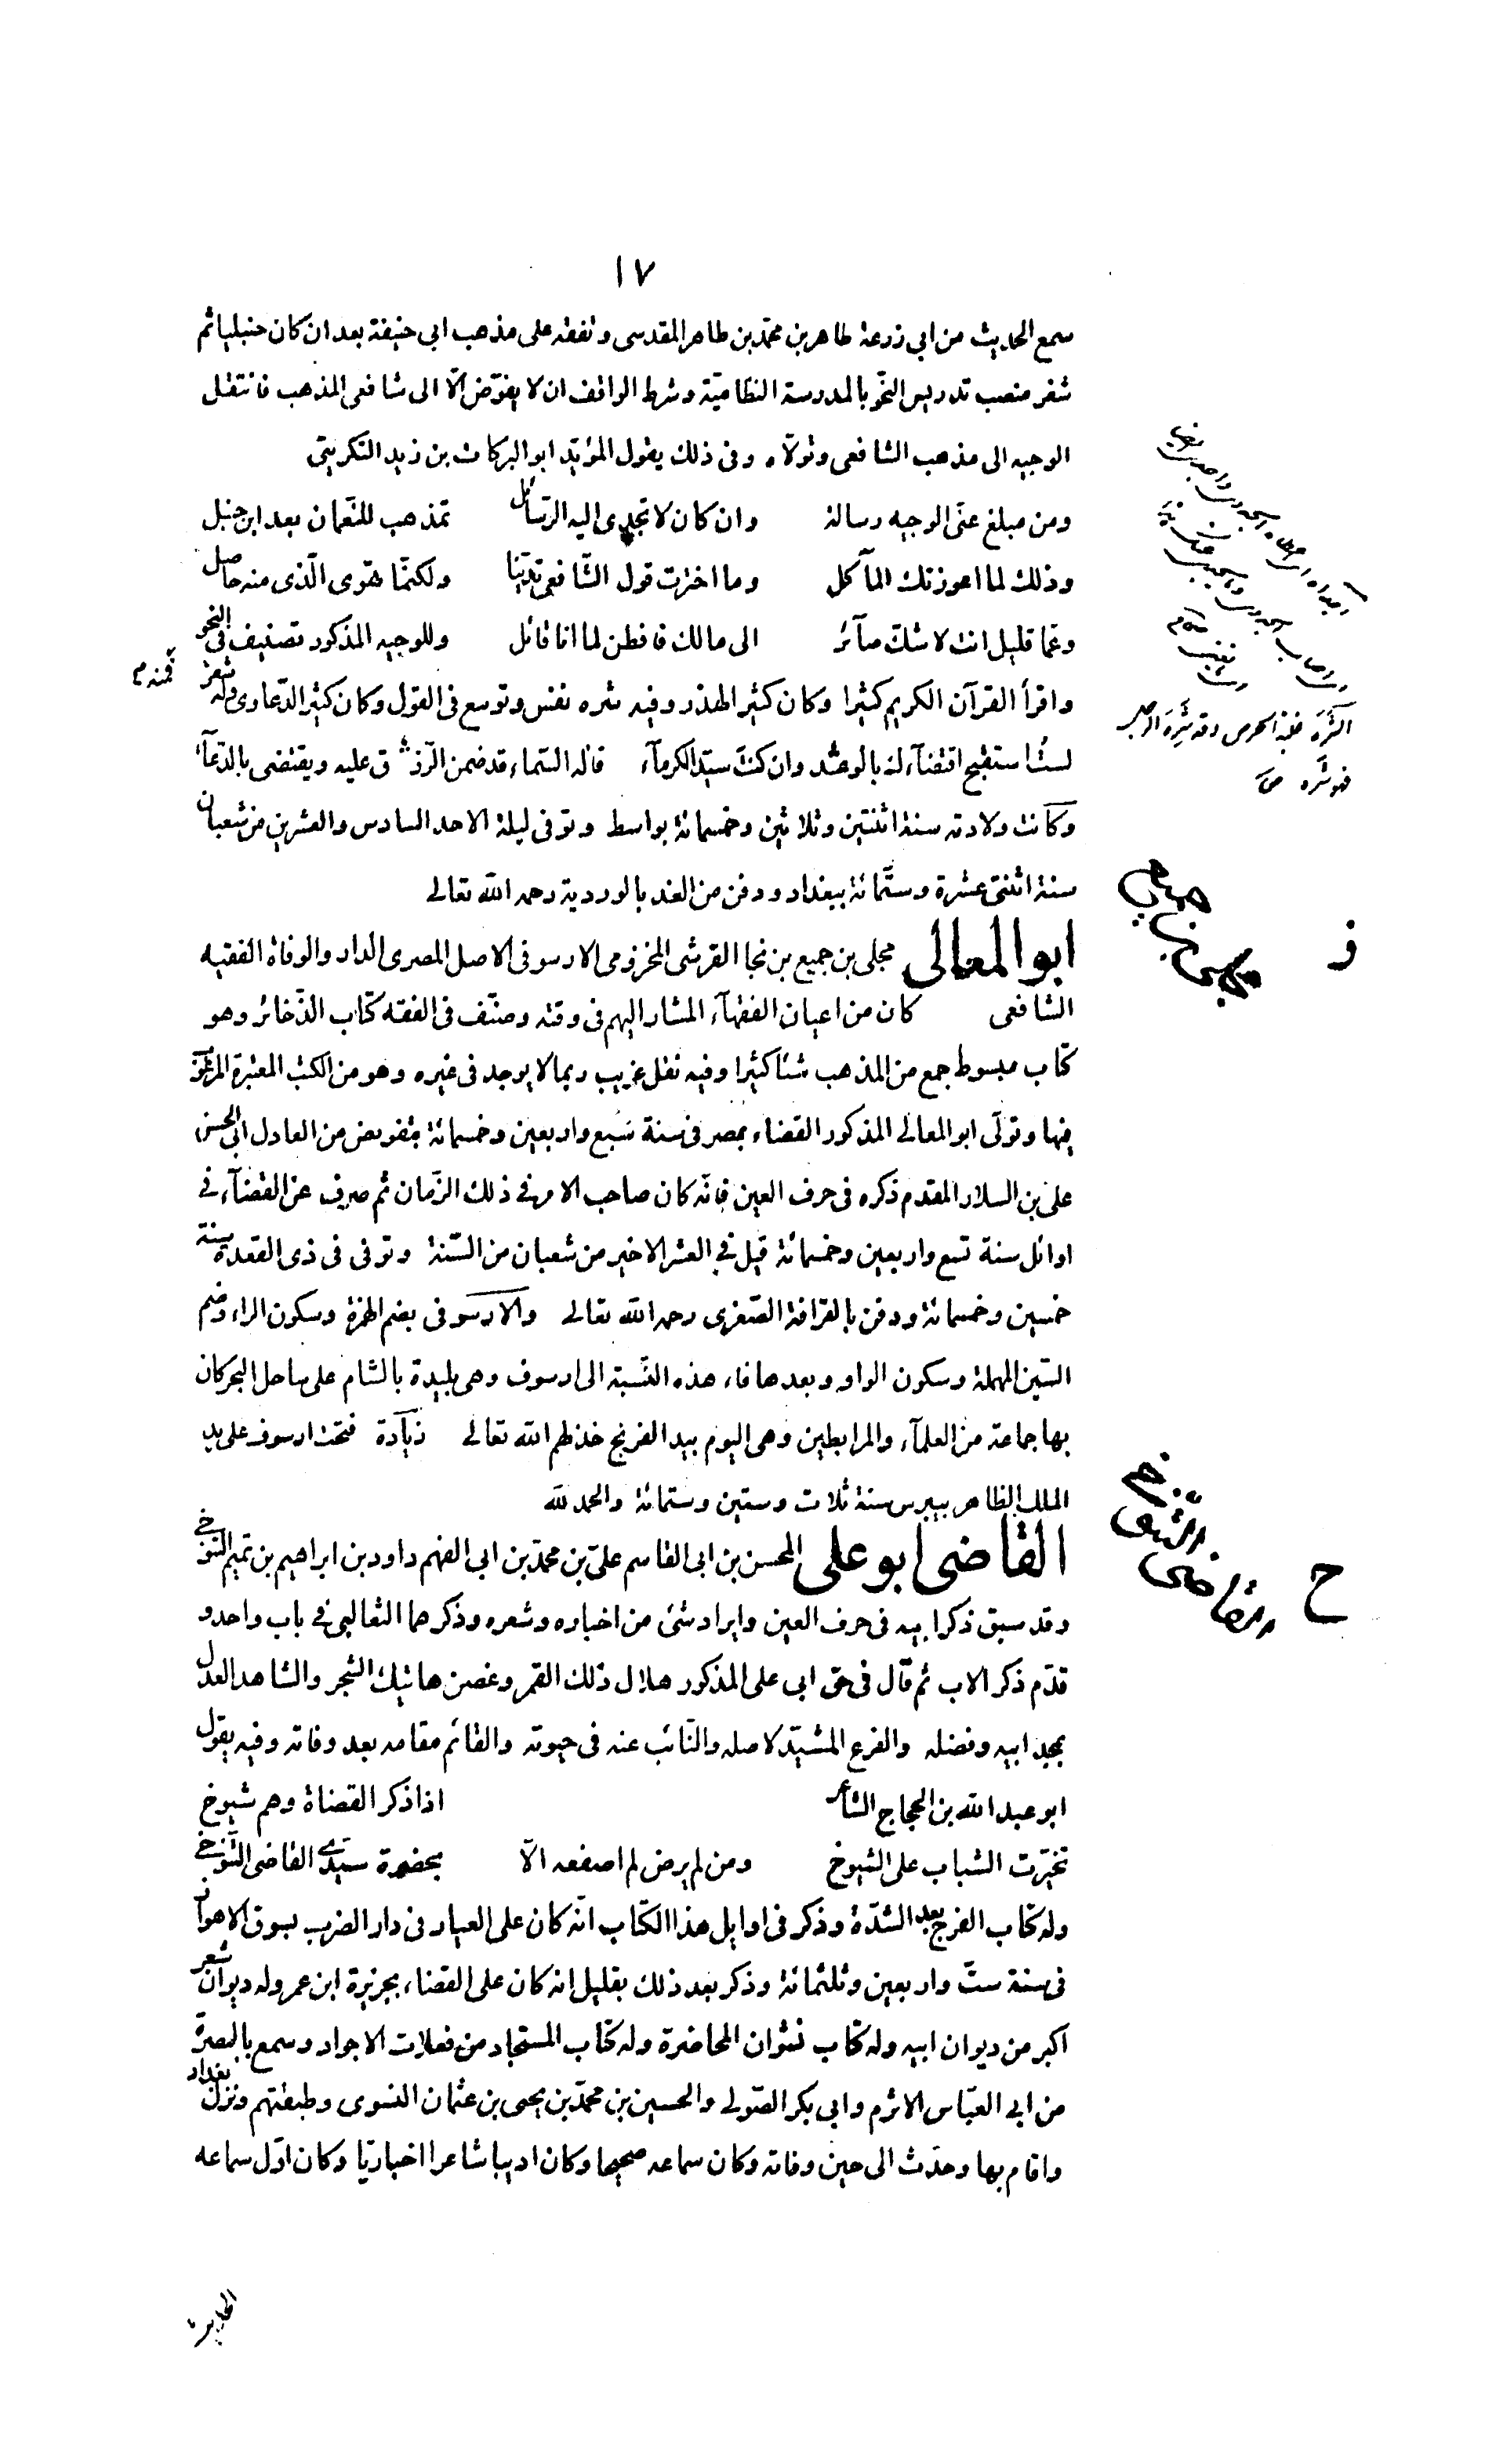 ١٧
سمع الحديث من ابي زرعة طاهر بن محمّد بن طاهر المقدسى وتفقه على مذهب ابى حنيفة بعد ان كان حنبليا ثم
شغر منصب تدريس النحو بالمدرسة النظاميّة وشرط الواقف ان لا يفوّض الّا الى شافعى المذهب فانتقل
الوجيه الى مذهب الشافعى وتولّاه وفى ذلك يقول المؤيّد ابو البركات بن زيد التكريتى
ومن مبلغ عنّى الوجيه رسالة وان كان لا تجدى اليه الرّسائل تمذهب للنّعمان بعد ابن حنبل
وذلك لما اعوزتك المآكل وما اخترت قول الشّافعى تديّنا ولكنّما تهوى الّذى منه حاصل
وعمّا قليل انت لا شكّ صآئر الى مالك فافطن لما انا قائل وللوجيه المذكور تصنيف فى النحو
واقرأ القرآن الكريم كثيرا وكان كثير الهذر وفيه شره نفس وتوسع فى القول وكان كثير الدّعاوى وله شعر
فمنه م
لستُ استقبح اقتضآءك بالوعد وان كنتَ سيّد الكرمآء فاله السّماء قد ضمن الرّزق عليه ويقتضى بالدّعآء
وكانت ولادته سنة اثنتين وثلاثين وخمسمائة بواسط وتوفى ليلة الاحد السادس والعشرين من شعبان
سنة اثنتى عشرة وستّمائة ببغداد ودفن من الغد بالوردية رحمه الله تعالى
ابو المعالى مجلى بن جميع بن نجا القرشى المخزومى الارسوفى الاصل المصرى الدار والوفاة الفقيه
الشافعى كان من اعيان الفقهآء المشار اليهم فى وقته وصنّف فى الفقه كتاب الذّخائر وهو
كتاب مبسوط جمع من المذهب شئا كثيرا وفيه نقل غريب ربما لا يوجد فى غيره وهو من الكتب المعتبرة المرغوب
فيها وتولّى ابو المعالى المذكور القضاء بمصر فى سنة سَبع واربعين وخمسمائة بتفويض من العادل ابى الحسن
على بن السلار المقدم ذكره فى حرف العين فانّه كان صاحب الامر فى ذلك الزّمان ثم صرف عن القضآء فى
اوائل سنة تسع واربعين وخمسمائة قيل فى العشر الاخير من شعبان من السّنة وتوفى فى ذى القعدة سنة
خمسين وخمسمائة ودفن بالقرافة الصّغرى رحمه الله تعالى والارسوفى بضم الهمزة وسكون الراء وضم
السّين المهملة وسكون الواو وبعدها فاء هذه النّسبة الى ارسوف وهى بليدة بالشام على ساحل البحر كان
بها جماعة من العلمآء والمرابطين وهى اليوم بيد الفرنج خذلهم الله تعالى زيادة فتحت ارسوف على يد
الملك الظاهر بيبرس سنة ثلاث وستين وستمائة والحمد لله
القاضى ابو على المحسن بن ابى القاسم علىّ بن محمّد بن ابى الفهم داود بن ابراهيم بن تميم التنوخى
وقد سبق ذكر ابيه فى حرف العين وايراد شئ من اخباره وشعره وذكرهما الثعالبى فى باب واحد و
قدّم ذكر الاب ثم قال فى حق ابى على المذكور هلال ذلك القمر وغصن هاتيك الشجر والشاهد العدل
بمجد ابيه وفضله والفرع المشيّد لاصله والنّائب عنه فى حيوته والقائم مقامه بعد وفاته وفيه يقول
ابو عبد الله بن الحجاج الشاعر اذا ذكر القضاة وهم شيوخ
تخيّرت الشباب على الشيوخ ومن لم يرض لم اصفعه الّا بحضرة سيّدى القاضى التّنوخى
وله كتاب الفرج بعد الشدّة وذكر فى اوايل هذا الكتاب انّه كان على العيار فى دار الضرب بسوق الاهواز
فى سنة ستّ واربعين وثلثمائة وذكر بعد ذلك بقليل انه كان على القضاء بجزيرة ابن عمر وله ديوان شعر
اكبر من ديوان ابيه وله كتاب نشوان المحاضرة وله كتاب المستجاد من فعلات الاجواد وسمع بالبصرة
من ابى العبّاس الاثرم وابى بكر الصّولى والحسين بن محمّد بن يحيى بن عثمان النسوى وطبقتهم ونزل بغداد
واقام بها وحدّث الى حين وفاته وكان سماعه صحيحا وكان اديبا شاعرا اخباريّا وكان اوّل سماعه
الشَّرَه غلبة الحرص وقد شَرِهَ الرجل
فهو شَره ص
ف
مجلى بن جميع
ح
القاضى التنوخى
الحديث